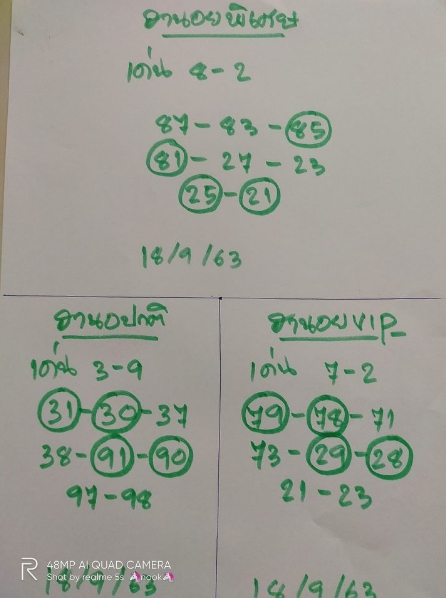 ฮานอยพิเศษ
เด่น 8-2
87-83-85
81-27-23
25-21
18/9/63
ฮานอยปกติ
เด่น 3-9
31-30-37
38-91-90
97-98
18/9/63
ฮานอยVIP
เด่น 7-2
79-78-71
73-29-28
21-23
18/9/63
R 48MP AI QUAD CAMERA
Shot by realme 5s nook